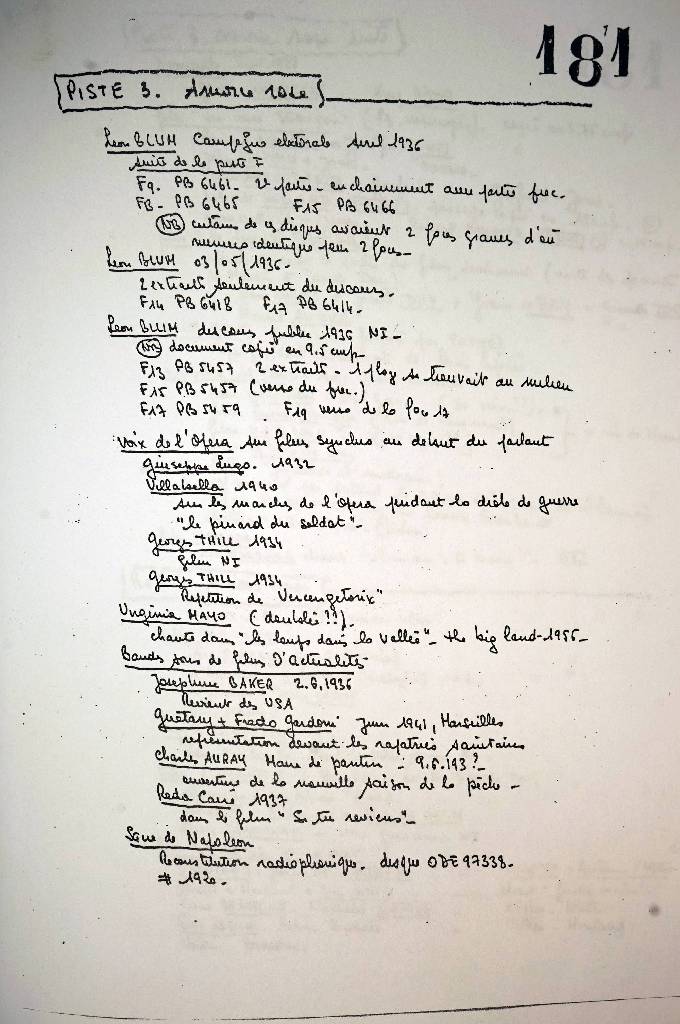 181
PISTE 3. Amorce rose
Leon BLUM Campagne electorale Avril 1936
suite de la piste F
F9. PB 6461 - 2e partie - enchainement avec partie prec.
F8 - PB 6465 F15 PB 6466
NB certains de ces disques avaient 2 faces gravées d'où
numero identique pour 2 faces -
Leon BLUM 03/05/1936 -
2 extraits seulement du discours.
F14 PB 6418 F17 PB 6414 -
Leon BLUM discours public 1936 NI -
NB document copié en 9.5 cm/s
F13 PB 5457 2 extraits - 1 plag se trouvait au milieu
F15 PB 5457 (verso du prec.)
F17 PB 5459 F19 verso de la face 17
Voix de l'Opera sur films synchro au debut du parlant
Giuseppe Lugo. 1932
Villabella 1940
sur les marches de l'Opera pendant la drôle de guerre
"le pinard du soldat" -
Georges THILL 1934
film NI
Georges THILL 1934
Repetition de Vercingetorix"
Virginia MAYO (doublée ??) -
chante dans "les loups dans la vallée" - the big land - 1956 -
Bandes sons de films d'actualités
Josephine BAKER 2.6.1936
Revient des USA
Guétary + Fredo Gardoni Juin 1941, Marseilles
représentation devant les rapatriés sanitaires
Charles AURAY Maire de pantin - 9.6.193?-
ouverture de la nouvelle saison de la pêche -
Reda Caire 1937
dans le film "Si tu reviens" -
Sacre de Napoleon
Reconstitution radiophonique. disque ODE 97338 -
# 1920 -